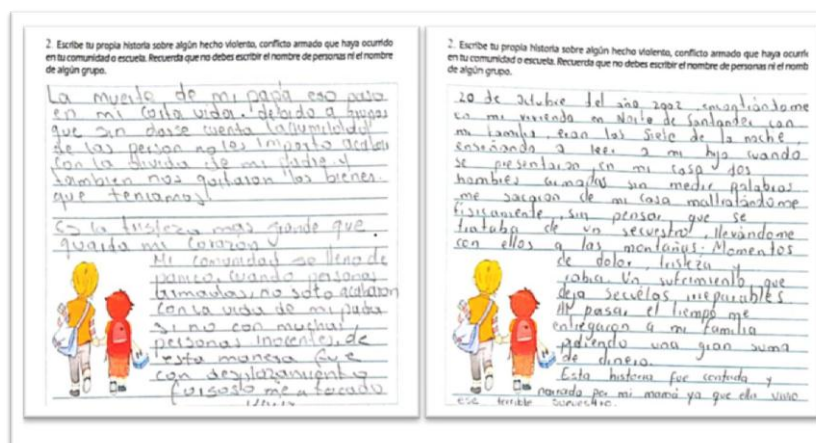 2. Escribe tu propia historia sobre algún hecho violento, conflicto armado que haya ocurrido
en tu comunidad o escuela. Recuerda que no debes escribir el nombre de personas ni el nombre
de algún grupo.
La muerte de mi papá eso paso
en mi corta vida. debido a grupos
que sin darse cuenta la humildad
de las person no les importo acabar
con la vida de mi padre y
tambien nos quitaron los bienes.
que teniamos.
Es la tristeza mas grande que
guarda mi corazon.
Mi comunidad se lleno de
panico, cuando personas
armadas, no solo acabaron
con la vida de mi padre
si no con muchas
personas inocentes, de
esta manera fue
con desplazamiento
forsoso me a tocado
2. Escribe tu propia historia sobre algún hecho violento, conflicto armado que haya ocurri
en tu comunidad o escuela. Recuerda que no debes escribir el nombre de personas ni el nomb
de algún grupo.
20 de octubre del año 2002 encontrándome
en mi vivienda en Norte de Santander con
mi familia, eran las siete de la noche,
enseñando a leer a mi hija cuando
se presentaron en mi casa dos
hombres armados sin medir palabras
me sacaron de mi casa maltratándome
físicamente, sin pensar que se
trataba de un secuestro, llevándome
con ellos a las montañas. Momentos
de dolor, tristeza y
rabia. Un sufrimiento que
deja secuelas irreparables
Al pasar el tiempo me
entregaron a mi familia
pidiendo una gran suma
de dinero.
Esta historia fue contada y
narrada por mi mamá ya que ella vivio
ese terrible secuestro.